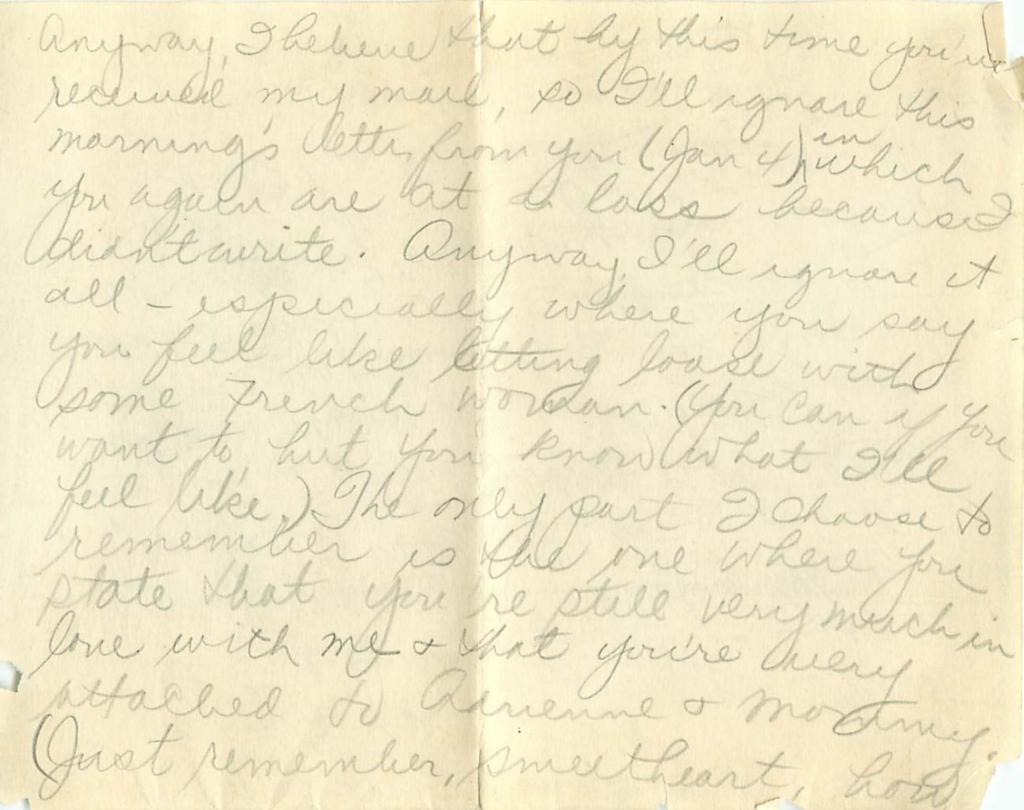 Anyway, I believe that by this time you've
received my mail, so I'll ignore this
morning's letter from you (Jan 4) in which
you again are at a loss because I
didn't write. Anyway, I'll ignore it
all - especially where you say
you feel like letting loose with
some French woman. (You can if you
want to, but you know what I'll
feel like.) The only part I choose to
remember is the one where you
state that you're still very much in
love with me & that you're very
attached to Adrienne & Mommy.
(Just remember, sweetheart, how